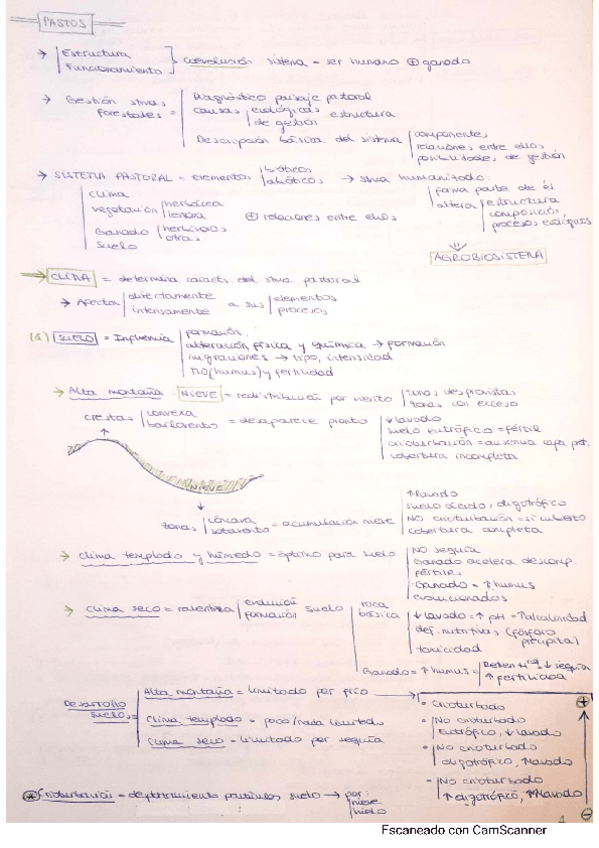 PASTOS
→ Estructura
Funcionamiento } coevolución sistema - ser humano ⊕ ganado
→ Gestión stmas forestales = | Diagnóstico paisaje pastoral
causas | ecológicas estructura
de gestión
Descripción básica del sistema | componentes
relaciones entre ellos
posibilidades de gestión
→ SISTEMA PASTORAL = elementos | bióticos
abióticos → stma humanizado:
clima
vegetación | herbácea
leñosa
Ganado | herbívoros
otros
Suelo
⊕ relaciones entre ellos
forma parte de él
altera | estructura
composición
procesos ecológicos
⇓
AGROBIOSISTEMA
→ CLIMA = determina caract. del stma pastoral
→ Afecta | directamente
intensamente a sus | elementos
procesos
(1) SUELO = Influencia | formación
alteración física y química → formación
migraciones → tipo, intensidad
MO (humus) y fertilidad
→ Alta montaña: NIEVE = redistribución por viento | zonas desprovistas
zonas con exceso
crestas | convexa
barlovento = desaparece pronto | ↓ lavado
suelo eutrófico = fértil
crioturbación = ausencia capa prot.
cobertura incompleta
NIEVE
zonas | cóncava
sotavento = acumulación nieve | ↑ lavado
suelo ácido, oligotrófico
NO crioturbación = si cubierto
cobertura completa
→ Clima templado y húmedo = óptimo para suelo | NO sequía
Ganado acelera descomp.
fértiles
Ganado = ↑ humus
evolucionados
→ Clima seco = ralentiza | evolución
formación suelo | roca básica | ↓ lavado = ↑ pH = ↑ alcalinidad
def. nutritivas (fósforo precipita)
toxicidad
Ganado = ↑ humus = | ↓ sequía
↑ fertilidad
Desarrollo suelos = | Alta montaña = limitado por frío →
Clima templado = poco/nada limitado
Clima seco = limitado por sequía
• Crioturbado
• | No crioturbado
Eutrófico, ↓ lavado
• | No crioturbado
oligotrófico, ↑ lavado
• | No crioturbado
↑ oligotrófico, ↑↑ lavado
⊕
⊖
* Crioturbación = desplazamiento partículas suelo → por: nieve
hielo
1
Escaneado con CamScanner